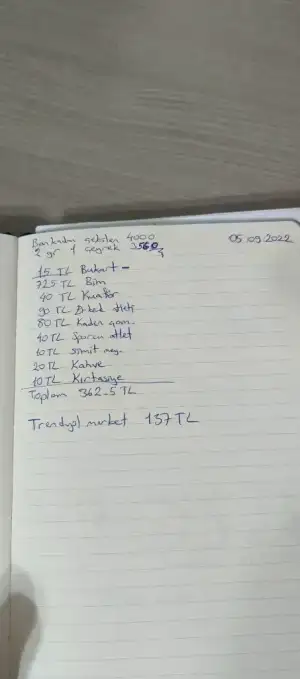 Bankadan gelen 4000
2 gr 1 çeyrek 3560
05.09.2022
15 TL Bukart -
725 TL Bim
40 TL Kuaför
90 TL atlet
80 TL Kaden
40 TL atlet
10 TL Simit
20 TL Kahve
10 TL Kırtasiye
Toplam 362.5 TL
Trendyol market 137 TL